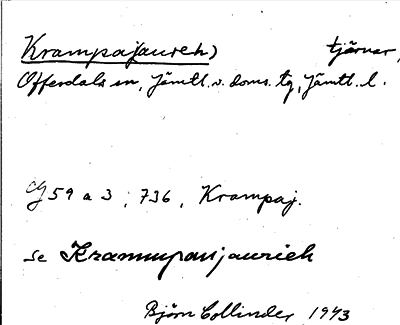 Krampajaureh) tjärnar,
Offerdals sn, Jämtl. v. doms. tg, Jämtl. l.
59 a 3; 736, Krampaj.
se Krammpanjaurieh
Björn Collinder 1943